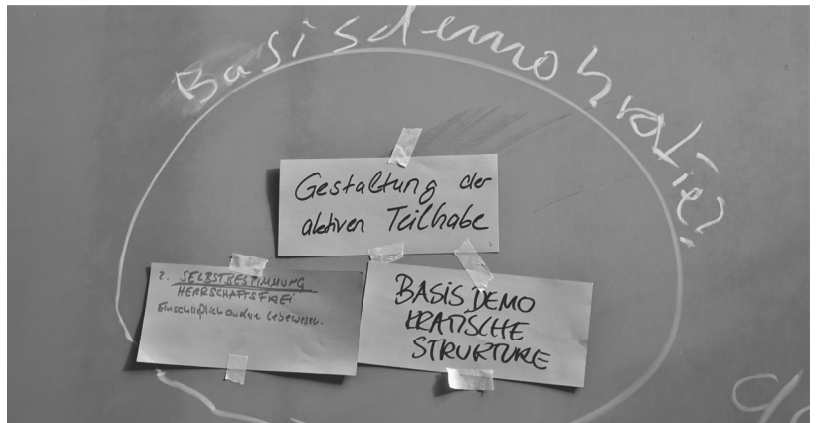 Basisdemokratie?
Gestaltung der
aktiven Teilhabe
2. SELBSTBESTIMMUNG
HERRSCHAFTSFREI
Einschließlich andere Lebewesen.
BASISDEMO
KRATISCHE
STRUKTURE